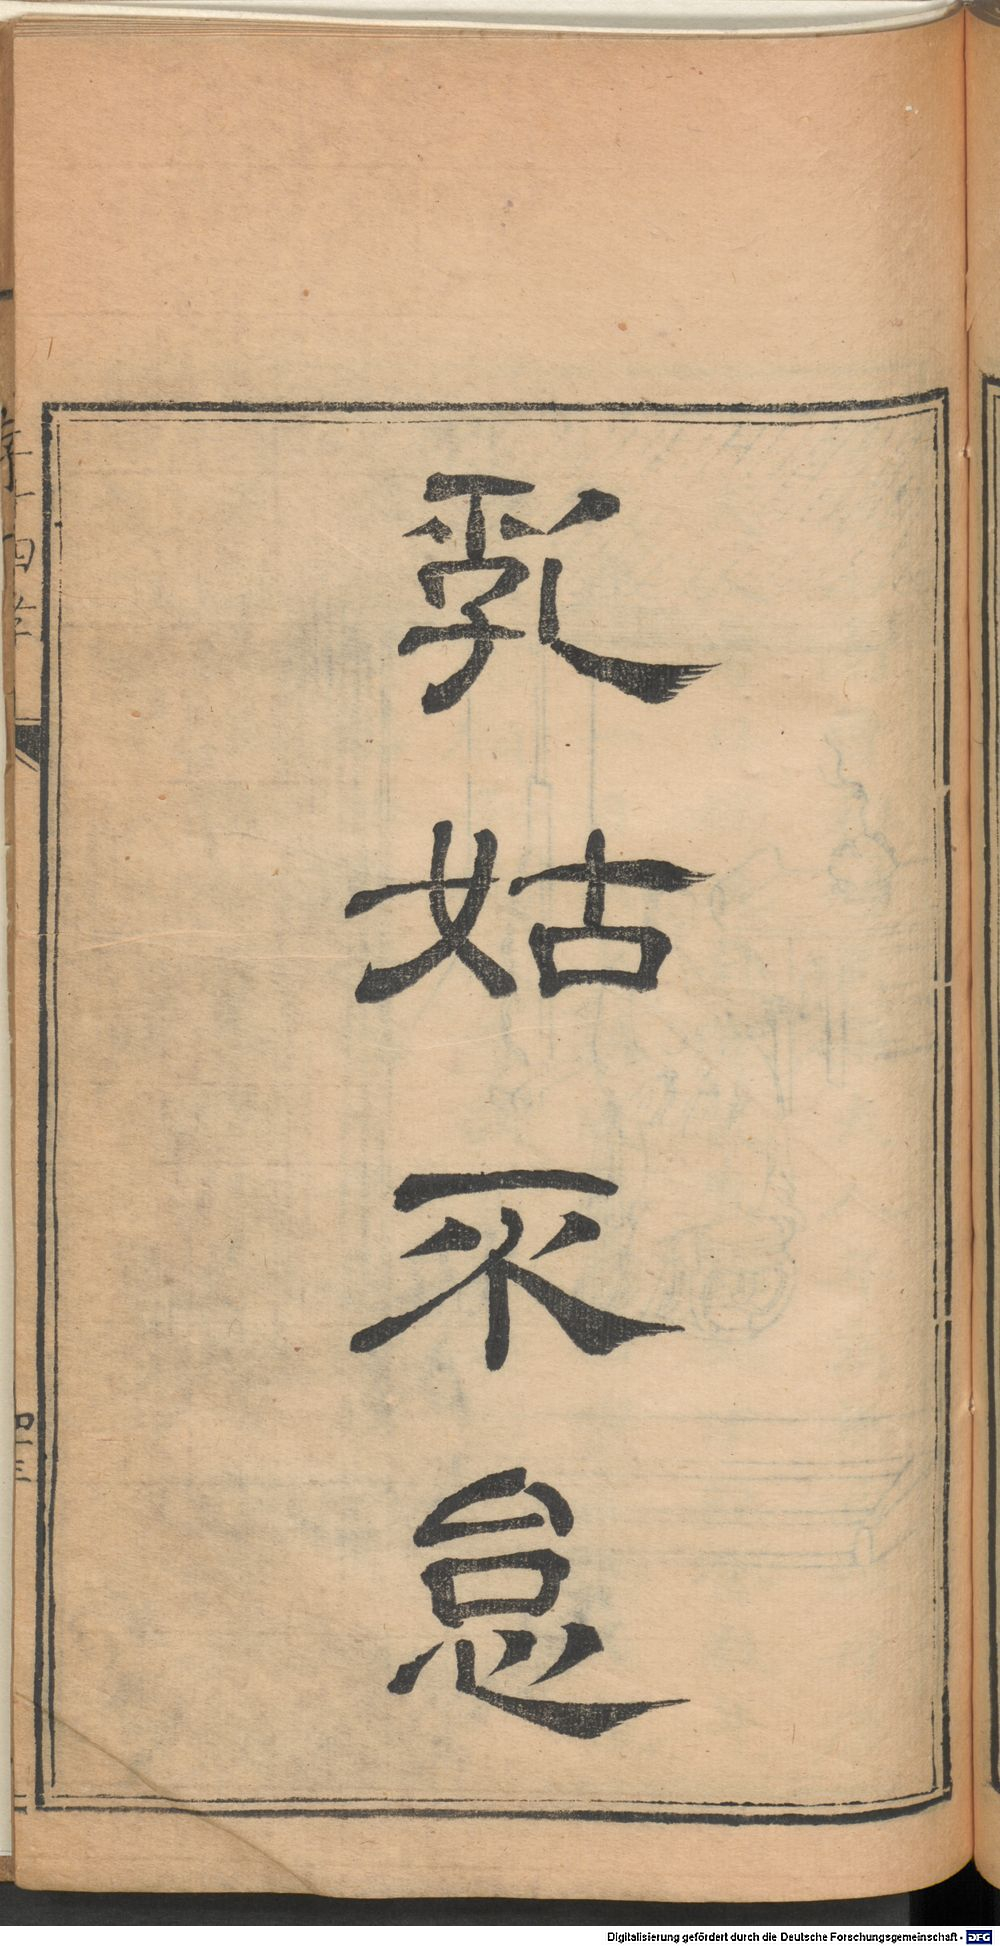 乳姑不怠
二十四孝
Digitalisierung gefördert durch die Deutsche Forschungsgemeinschaft - DFG